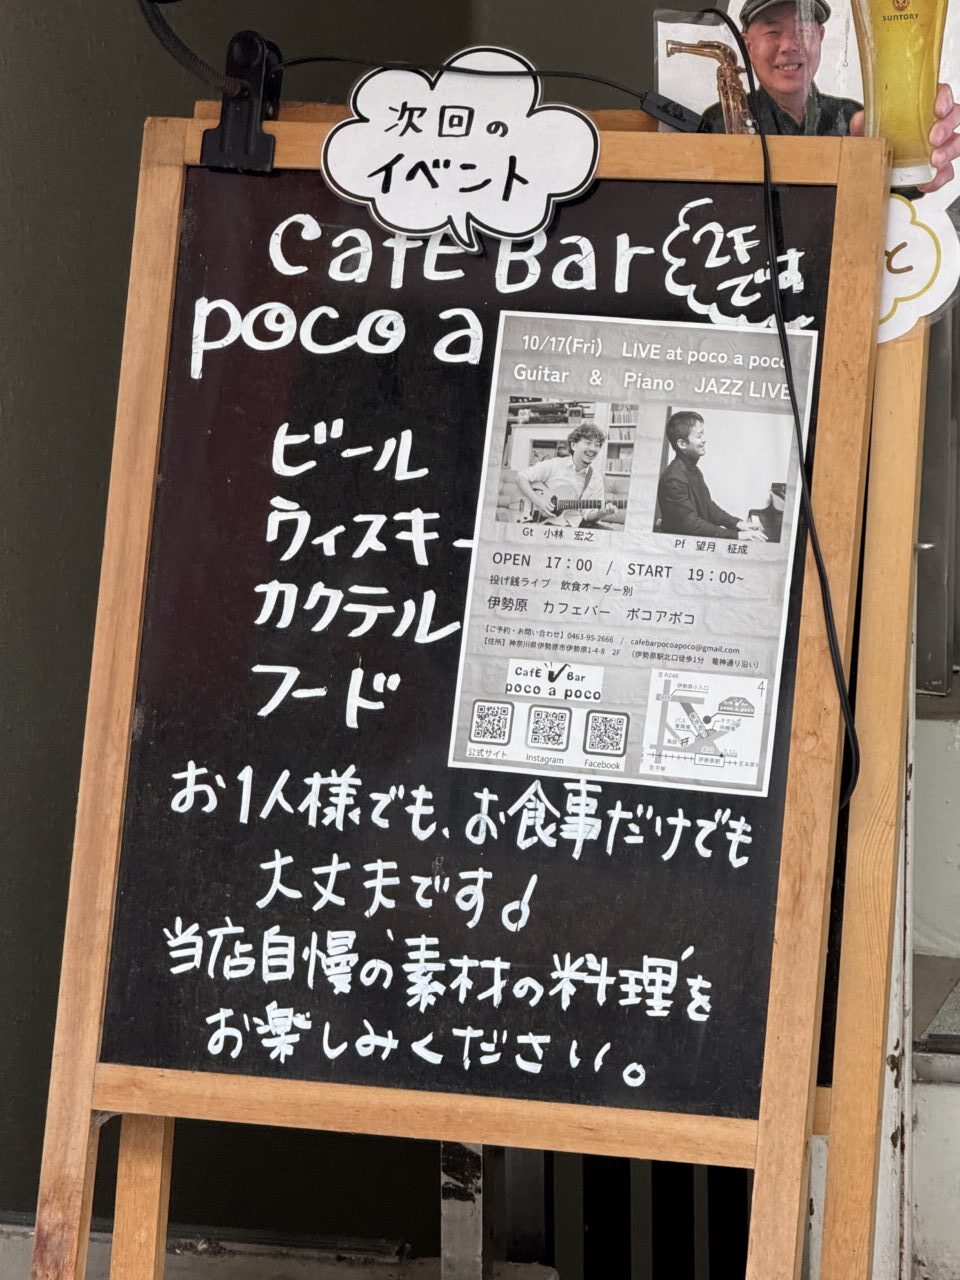 SUNTORY
次回の
イベント
Café Bar
2F
です
poco a
と
10/17(Fri) LIVE at poco a poco
Guitar & Piano JAZZ LIVE
Gt 小林 宏之
Pf 望月 柾成
OPEN 17：00 / START 19：00~
投げ銭ライブ 飲食オーダー別
伊勢原 カフェバー ポコアポコ
【ご予約・お問い合わせ】0463-95-2666 / cafebarpocoapoco@gmail.com
【住所】神奈川県伊勢原市伊勢原1-4-8 2F （伊勢原駅北口徒歩1分 竜神通り沿い）
Café Bar
poco a poco
公式サイト
Instagram
Facebook
至R246
伊勢原小入口
4
伊勢原駅
至平塚
至本厚木
ビール
ウィスキー
カクテル
フード
お1人様でも、お食事だけでも
大丈夫です♪
当店自慢の“素材の料理”を
お楽しみください。